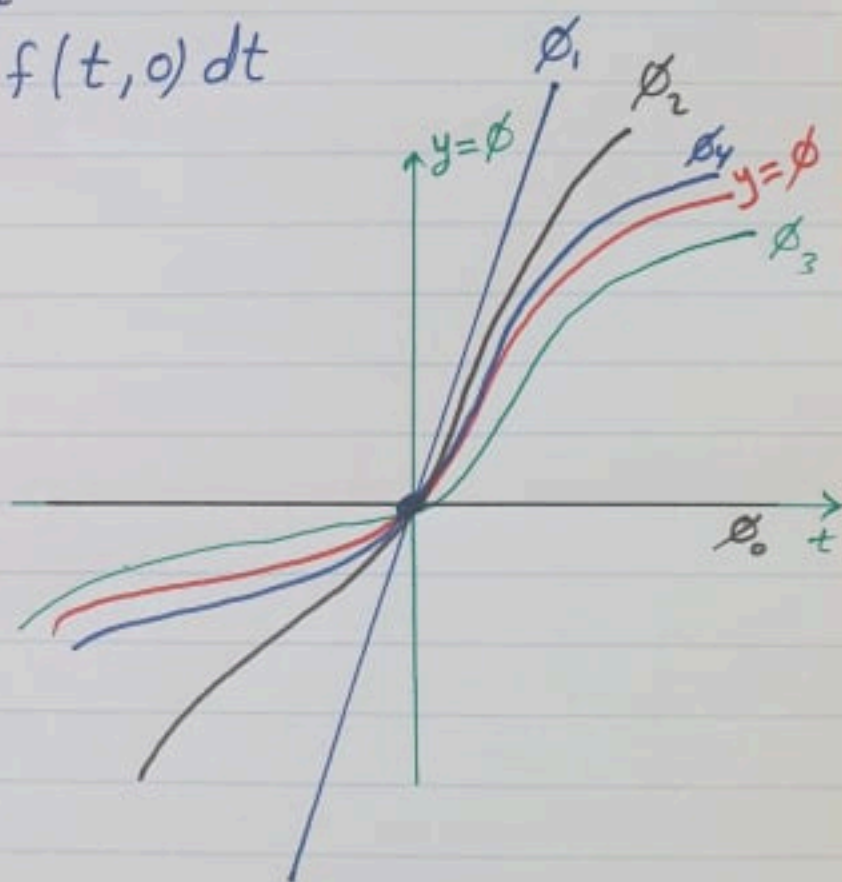 f(t,0) dt
ϕ₁
ϕ₂
y=ϕ
ϕ₄
y=ϕ
ϕ₃
ϕ₀
t